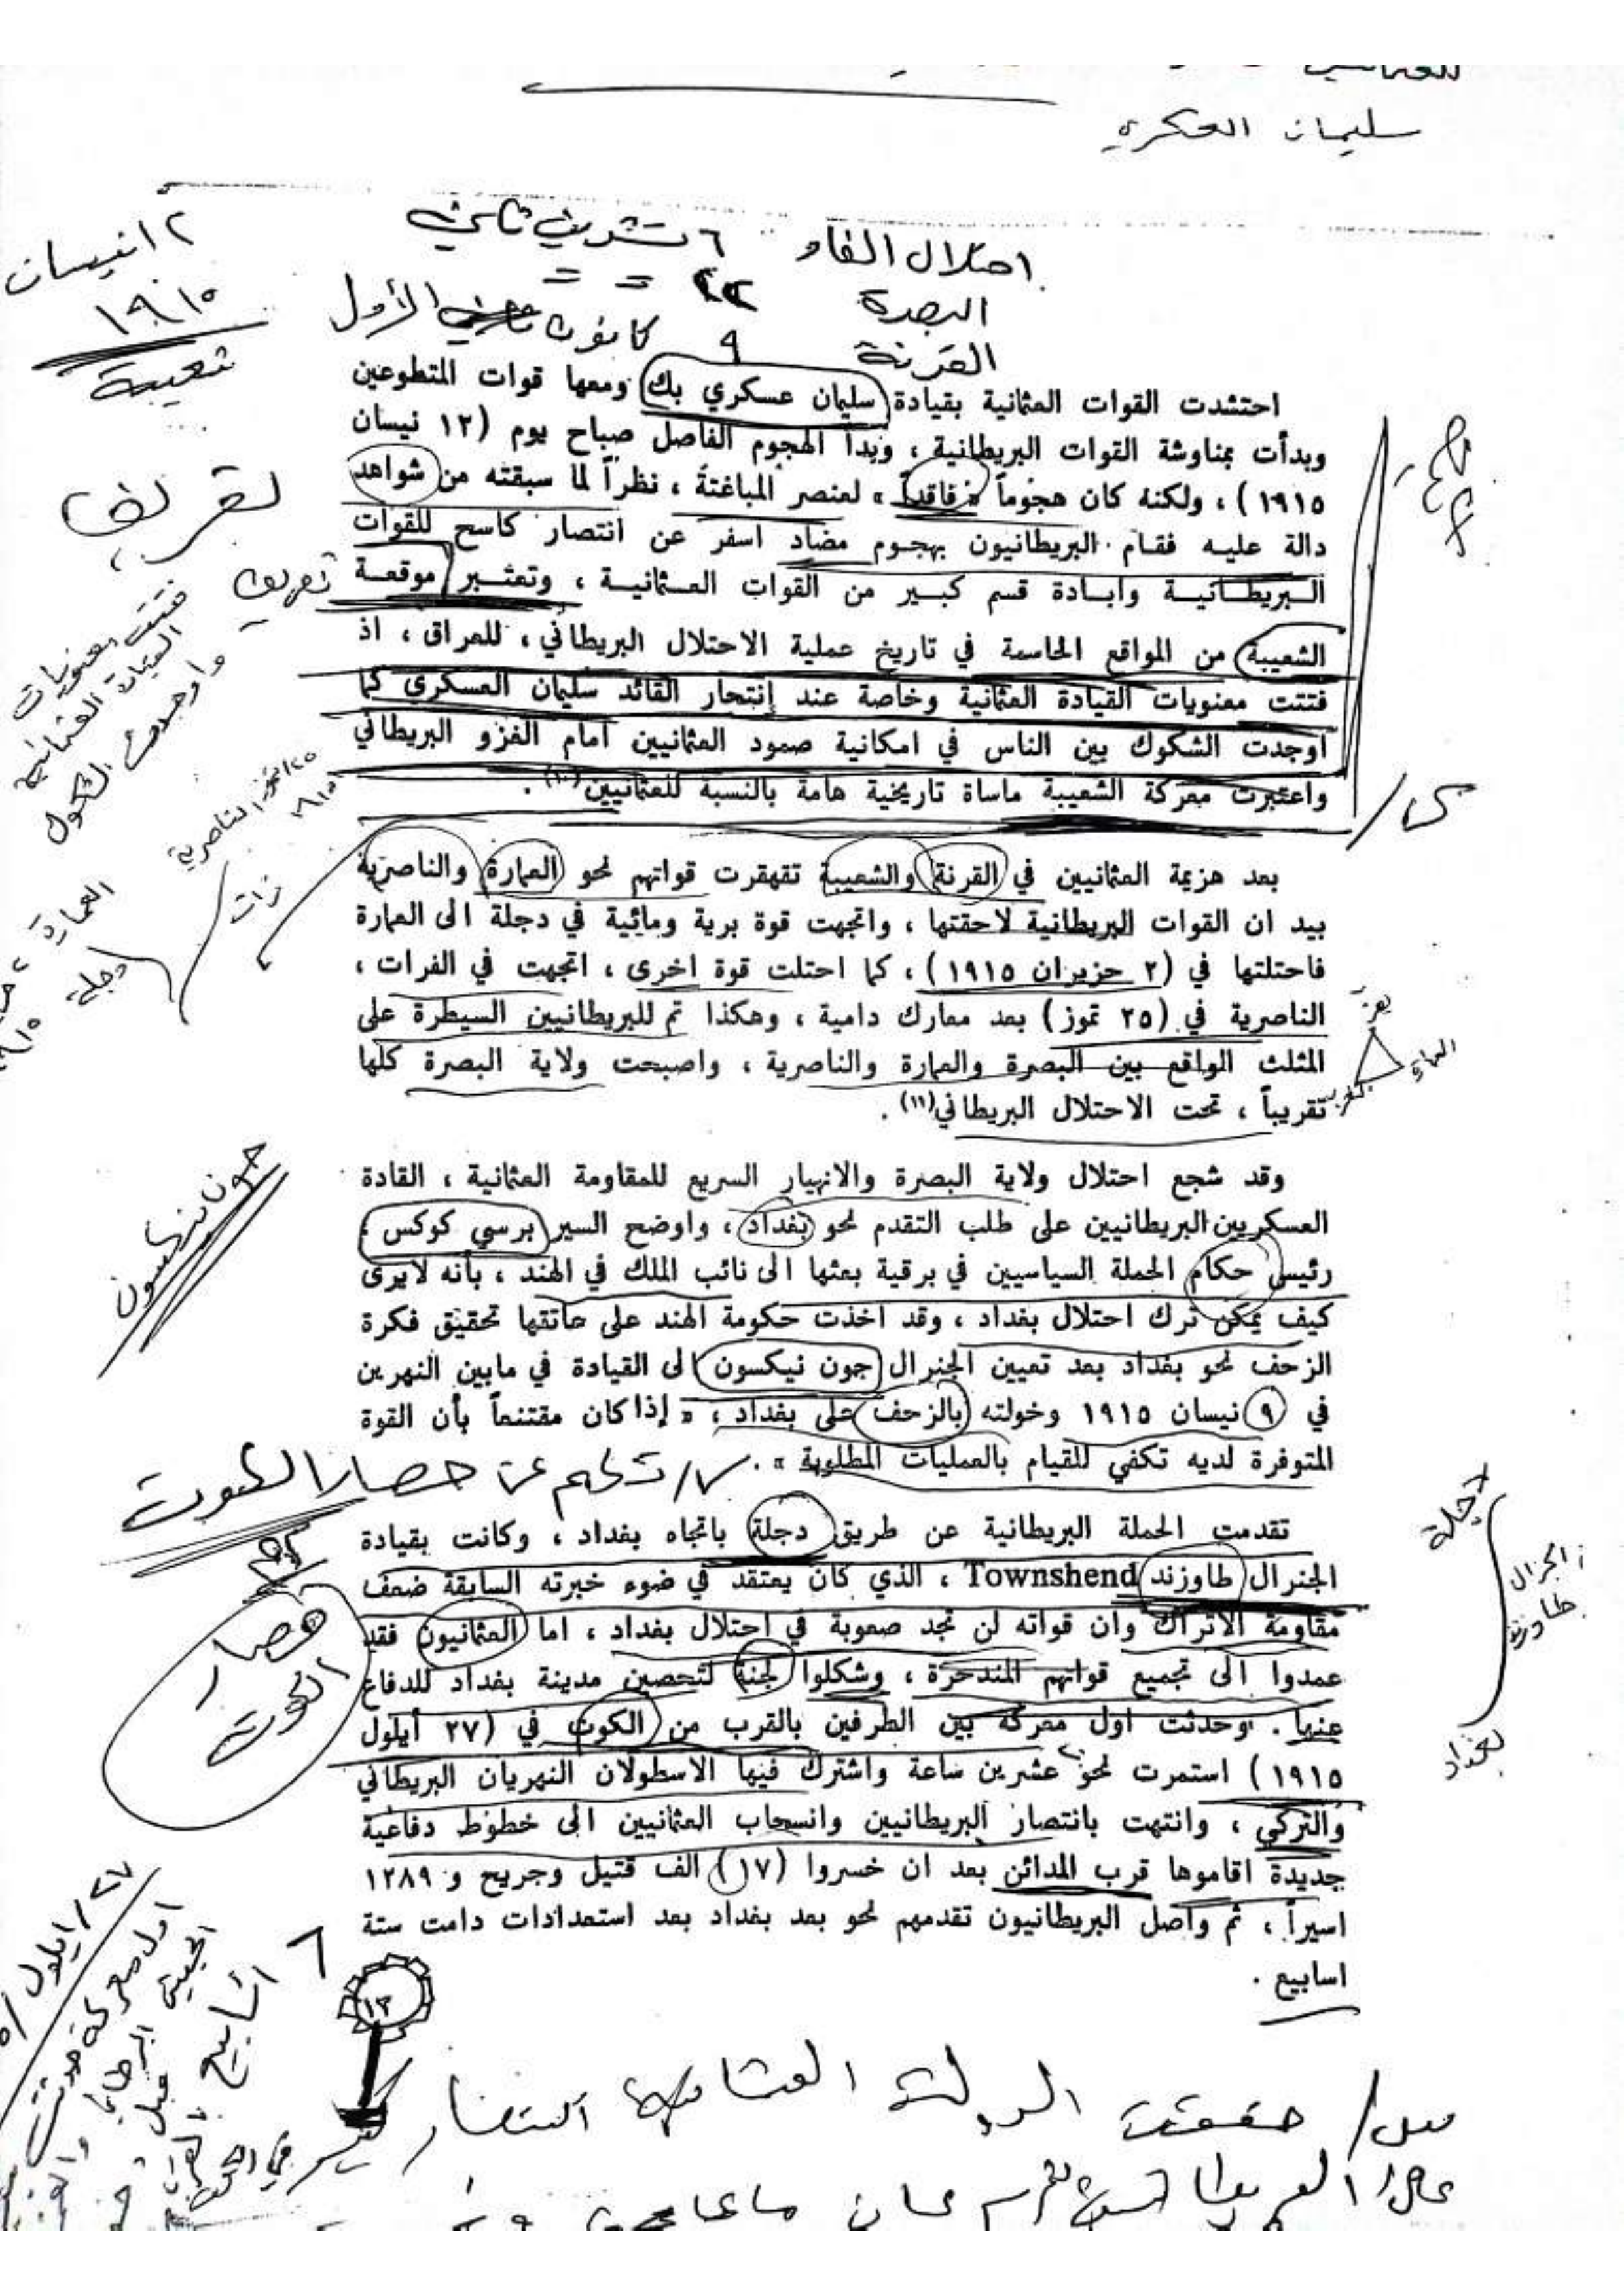 سليمان العسكري
احتلال الفاو ٦ تشرين ثاني
البصرة ٢٢ = =
القرنة ٩ كانون الأول
١٢ نيسان
١٩١٥
شعيبة
احتشدت القوات العثمانية بقيادة سليمان عسكري بك ومعها قوات المتطوعين
وبدأت بمناوشة القوات البريطانية ، وبدأ الهجوم الفاصل صباح يوم (١٢ نيسان
١٩١٥) ، ولكنه كان هجوماً « فاقداً » لعنصر المباغتة ، نظراً لما سبقته من شواهد
دالة عليه فقام البريطانيون بهجوم مضاد اسفر عن انتصار كاسح للقوات
البريطانية وابادة قسم كبير من القوات العثمانية ، وتعتبر موقعة
الشعيبة من المواقع الحاسمة في تاريخ عملية الاحتلال البريطاني ، للعراق ، اذ
فتتت معنويات القيادة العثمانية وخاصة عند إنتحار القائد سليمان العسكري كما
اوجدت الشكوك بين الناس في امكانية صمود العثمانيين امام الغزو البريطاني
واعتبرت معركة الشعيبة ماساة تاريخية هامة بالنسبة للعثمانيين(١٠) .
مهم
تعريف
تعريف
فتت معنويات
واوجدت الشكوك
بعد هزيمة العثمانيين في القرنة والشعيبة تقهقرت قواتهم نحو العمارة والناصرية
بيد ان القوات البريطانية لاحقتها ، واتجهت قوة برية ومائية في دجلة الى العمارة
فاحتلتها في (٢ حزيران ١٩١٥) ، كما احتلت قوة اخرى ، اتجهت في الفرات ،
الناصرية في (٢٥ تموز) بعد معارك دامية ، وهكذا تم للبريطانيين السيطرة على
المثلث الواقع بين البصرة والعمارة والناصرية ، واصبحت ولاية البصرة كلها
تقريباً ، تحت الاحتلال البريطاني(١١) .
٢٥ تموز الناصرية
العمارة
دجلة
وقد شجع احتلال ولاية البصرة والانهيار السريع للمقاومة العثمانية ، القادة
العسكريين البريطانيين على طلب التقدم نحو بغداد ، واوضح السير برسي كوكس ،
رئيس حكام الحملة السياسيين في برقية بعثها الى نائب الملك في الهند ، بأنه لايرى
كيف يمكن ترك احتلال بغداد ، وقد اخذت حكومة الهند على عاتقها تحقيق فكرة
الزحف نحو بغداد بعد تعيين الجنرال جون نيكسون الى القيادة في مابين النهرين
في ٩ نيسان ١٩١٥ وخولته بالزحف على بغداد ، « إذا كان مقتنعاً بأن القوة
المتوفرة لديه تكفي للقيام بالعمليات المطلوبة » .
جون نيكسون
س/ تكلم عن حصار الكوت
تقدمت الحملة البريطانية عن طريق دجلة باتجاه بغداد ، وكانت بقيادة
الجنرال طاوزند Townshend ، الذي كان يعتقد في ضوء خبرته السابقة ضعف
مقاومة الاتراك وان قواته لن تجد صعوبة في احتلال بغداد ، اما العثمانيون فقد
عمدوا الى تجميع قواتهم المندحرة ، وشكلوا لجنة لتحصين مدينة بغداد للدفاع
عنها . وحدثت اول معركة بين الطرفين بالقرب من الكوت في (٢٧ أيلول
١٩١٥) استمرت نحو عشرين ساعة واشترك فيها الاسطولان النهريان البريطاني
والتركي ، وانتهت بانتصار البريطانيين وانسحاب العثمانيين الى خطوط دفاعية
جديدة اقاموها قرب المدائن بعد ان خسروا (١٧) الف قتيل وجريح و ١٢٨٩
اسيراً ، ثم واصل البريطانيون تقدمهم نحو بعد بغداد بعد استعدادات دامت ستة
اسابيع .
حصار
الكوت
دجلة
الجنرال
طاوزند
بغداد
٢٧/ايلول
اول معركة حدثت
٦ اسابيع
١٣
س/ حققت الدولة العثمانية انتصار كبير